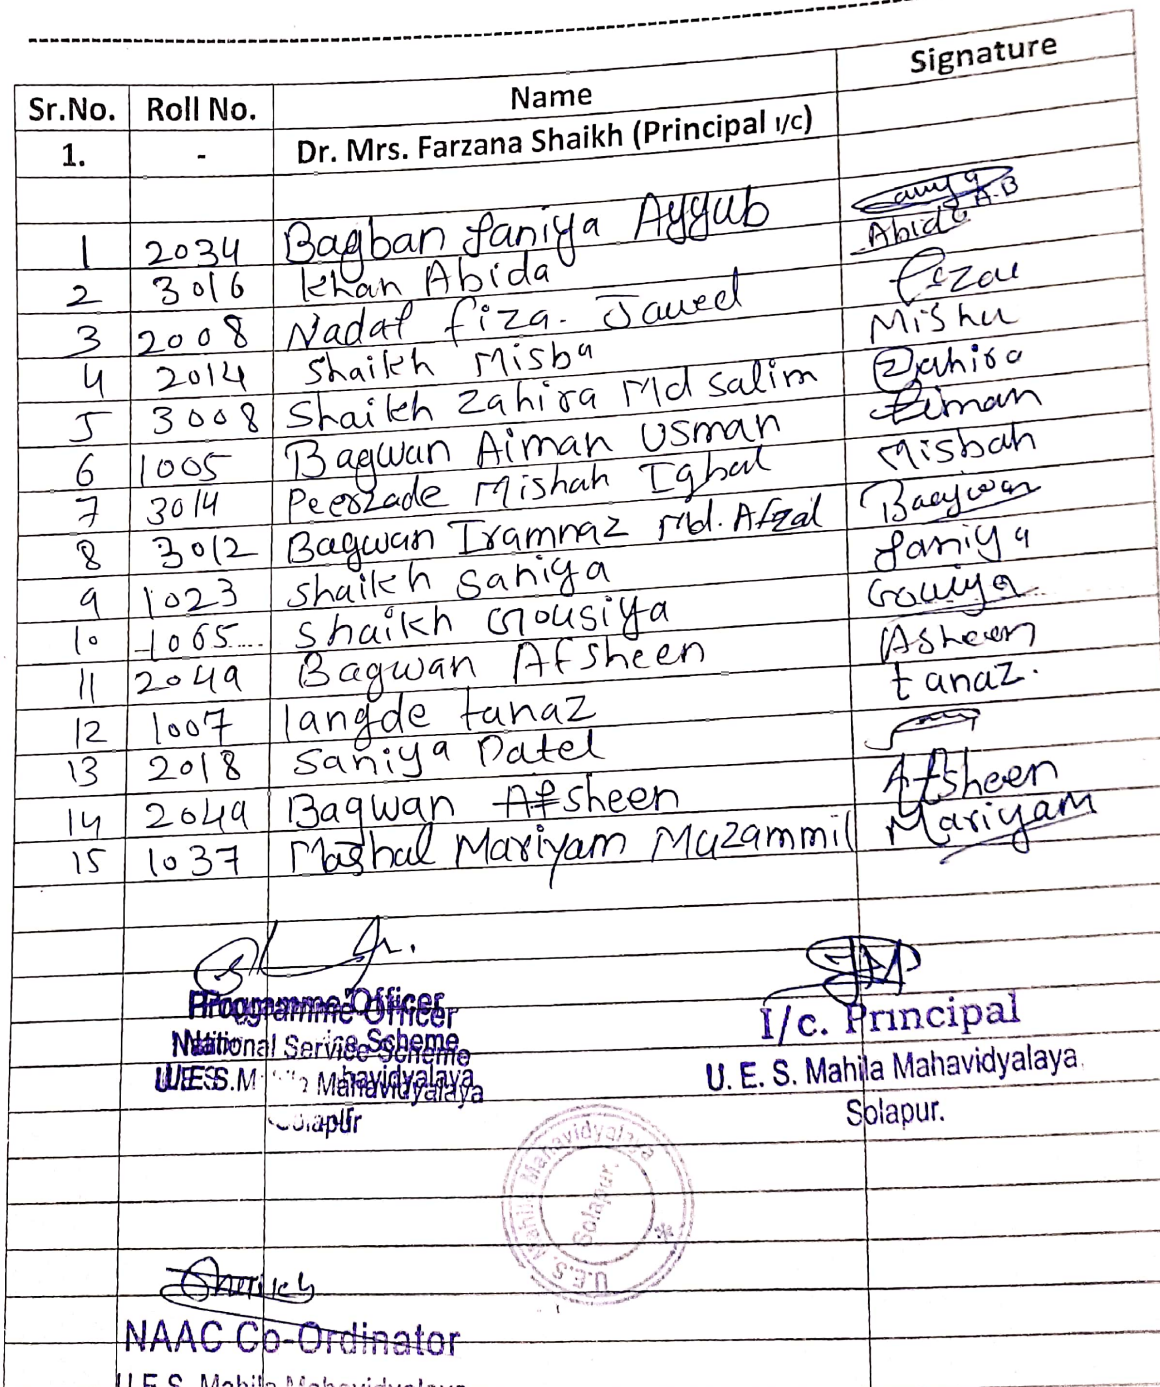 Sr.No. Roll No. Name Signature
1. - Dr. Mrs. Farzana Shaikh (Principal I/c)
1 2034 Bagban Saniya Ayyub Saniya A.B
2 3016 Khan Abida Abida
3 2008 Nadaf fiza. Javed fizau
4 2014 Shaikh Misba Mishu
5 3008 Shaikh Zahira Md Salim Zahira
6 1005 Bagwan Aiman Usman Eiman
7 3014 Peerzade Misbah Iqbal Misbah
8 3012 Bagwan Iramnaz Md. Afzal Bagwan
9 1023 Shaikh Saniya Saniya
10 1065 Shaikh Gousiya Gousiya
11 2049 Bagwan Afsheen Asheen
12 1007 langde tanaz tanaz.
13 2018 Saniya Patel
14 2049 Bagwan Afsheen Afsheen
15 1037 Mashal Mariyam Muzammil Mariyam
Programme Officer
National Service Scheme
U.E.S. Mahila Mahavidyalaya
Solapur
I/c. Principal
U. E. S. Mahila Mahavidyalaya
Solapur.
U.E.S. Mahila Mahavidyalaya
Solapur.
NAAC Co-Ordinator
U.E.S. Mahila Mahavidyalaya